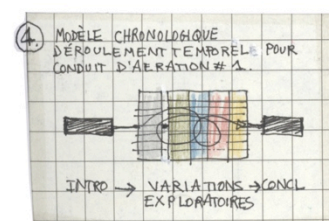 4. MODÈLE CHRONOLOGIQUE
DÉROULEMENT TEMPOREL POUR
CONDUIT D'AERATION # 1.
INTRO → VARIATIONS → CONCL
EXPLORATOIRES